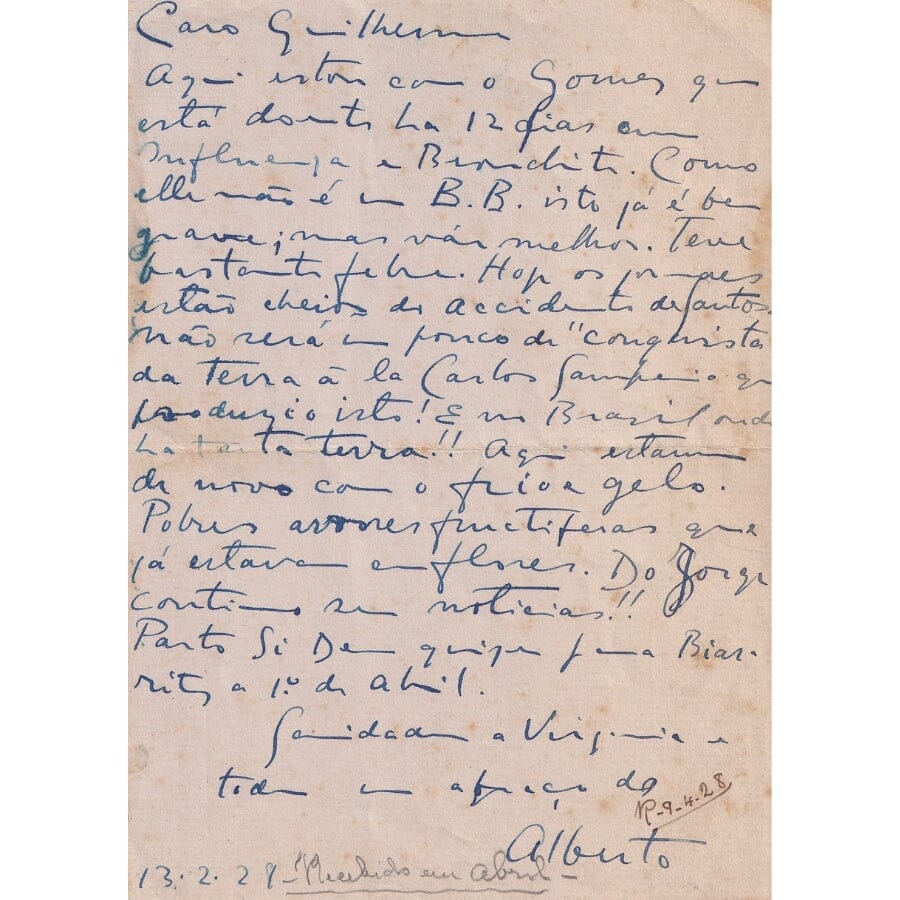 Caro Guilherme
Aqui estou com o Gomez que
está doente ha 12 dias com
Influenza e Bronchite. Como
elle não é um B.B. isto já é bem
grave; mas vae melhor. Teve
bastante febre. Hoje os jornaes
estão cheios do accidente de Santos.
Não será um pouco de "conquista
da terra à la Carlos Sampaio que
produzio isto! E no Brasil onde
ha tanta terra!! Aqui estamos
de novo com o frio e gelo.
Pobres arvores fructiferas que
já estavam em flores. Do Jorge
continuo sem noticias!!
Parto Si Deus quizer para Biar-
ritz a 1º de Abril.
Saudades a Virginia e
um abraço do
Alberto
R-9-4-28
13.2.28 - Recebido em Abril -